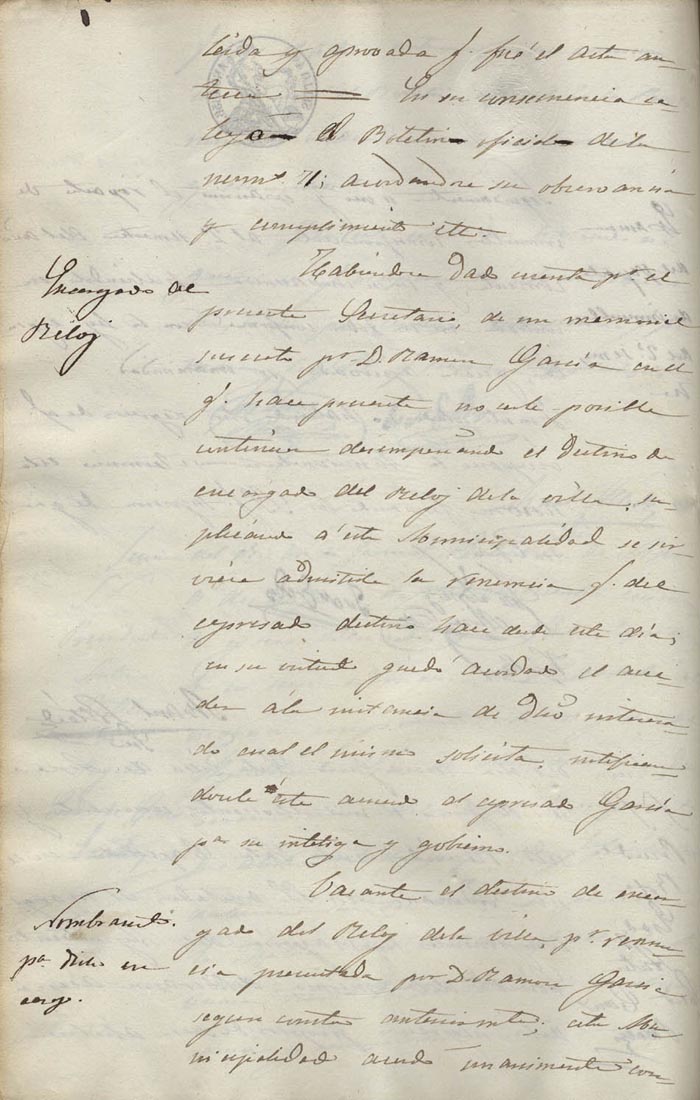 leida y aprovada q.e fué el acta an-
terior En su consecuencia se
leyó el Boletin oficial de la
num.o 71; acordandose su observancia
y cumplimiento etc.
Encargado del
Reloj
Habiendose dado cuenta p.r el
presente Secretario, de un memorial
suscrito p.r D. Ramon Garcia en el
q.e hace presente no serle posible
continuar desempeñando el destino de
encargado del Reloj de la villa, su-
plicando á esta Municipalidad se sir-
viera admitirle la renuncia q.e del
espresado destino hace desde este dia;
en su virtud quedó acordado el acce-
der á la instancia de dho interesa-
do cual el mismo solicita, notifican-
dosele este acuerdo al espresado Garcia
p.a su inteliga y gobierno.
Nombrand.
p.a dicho en
cargo.
Vacante el destino de encar-
gado del Reloj de la villa, p.r renun-
cia presentada por D. Ramon Garcia
segun consta anteriormte; esta Mu-
nicipalidad acordó unanimente con-